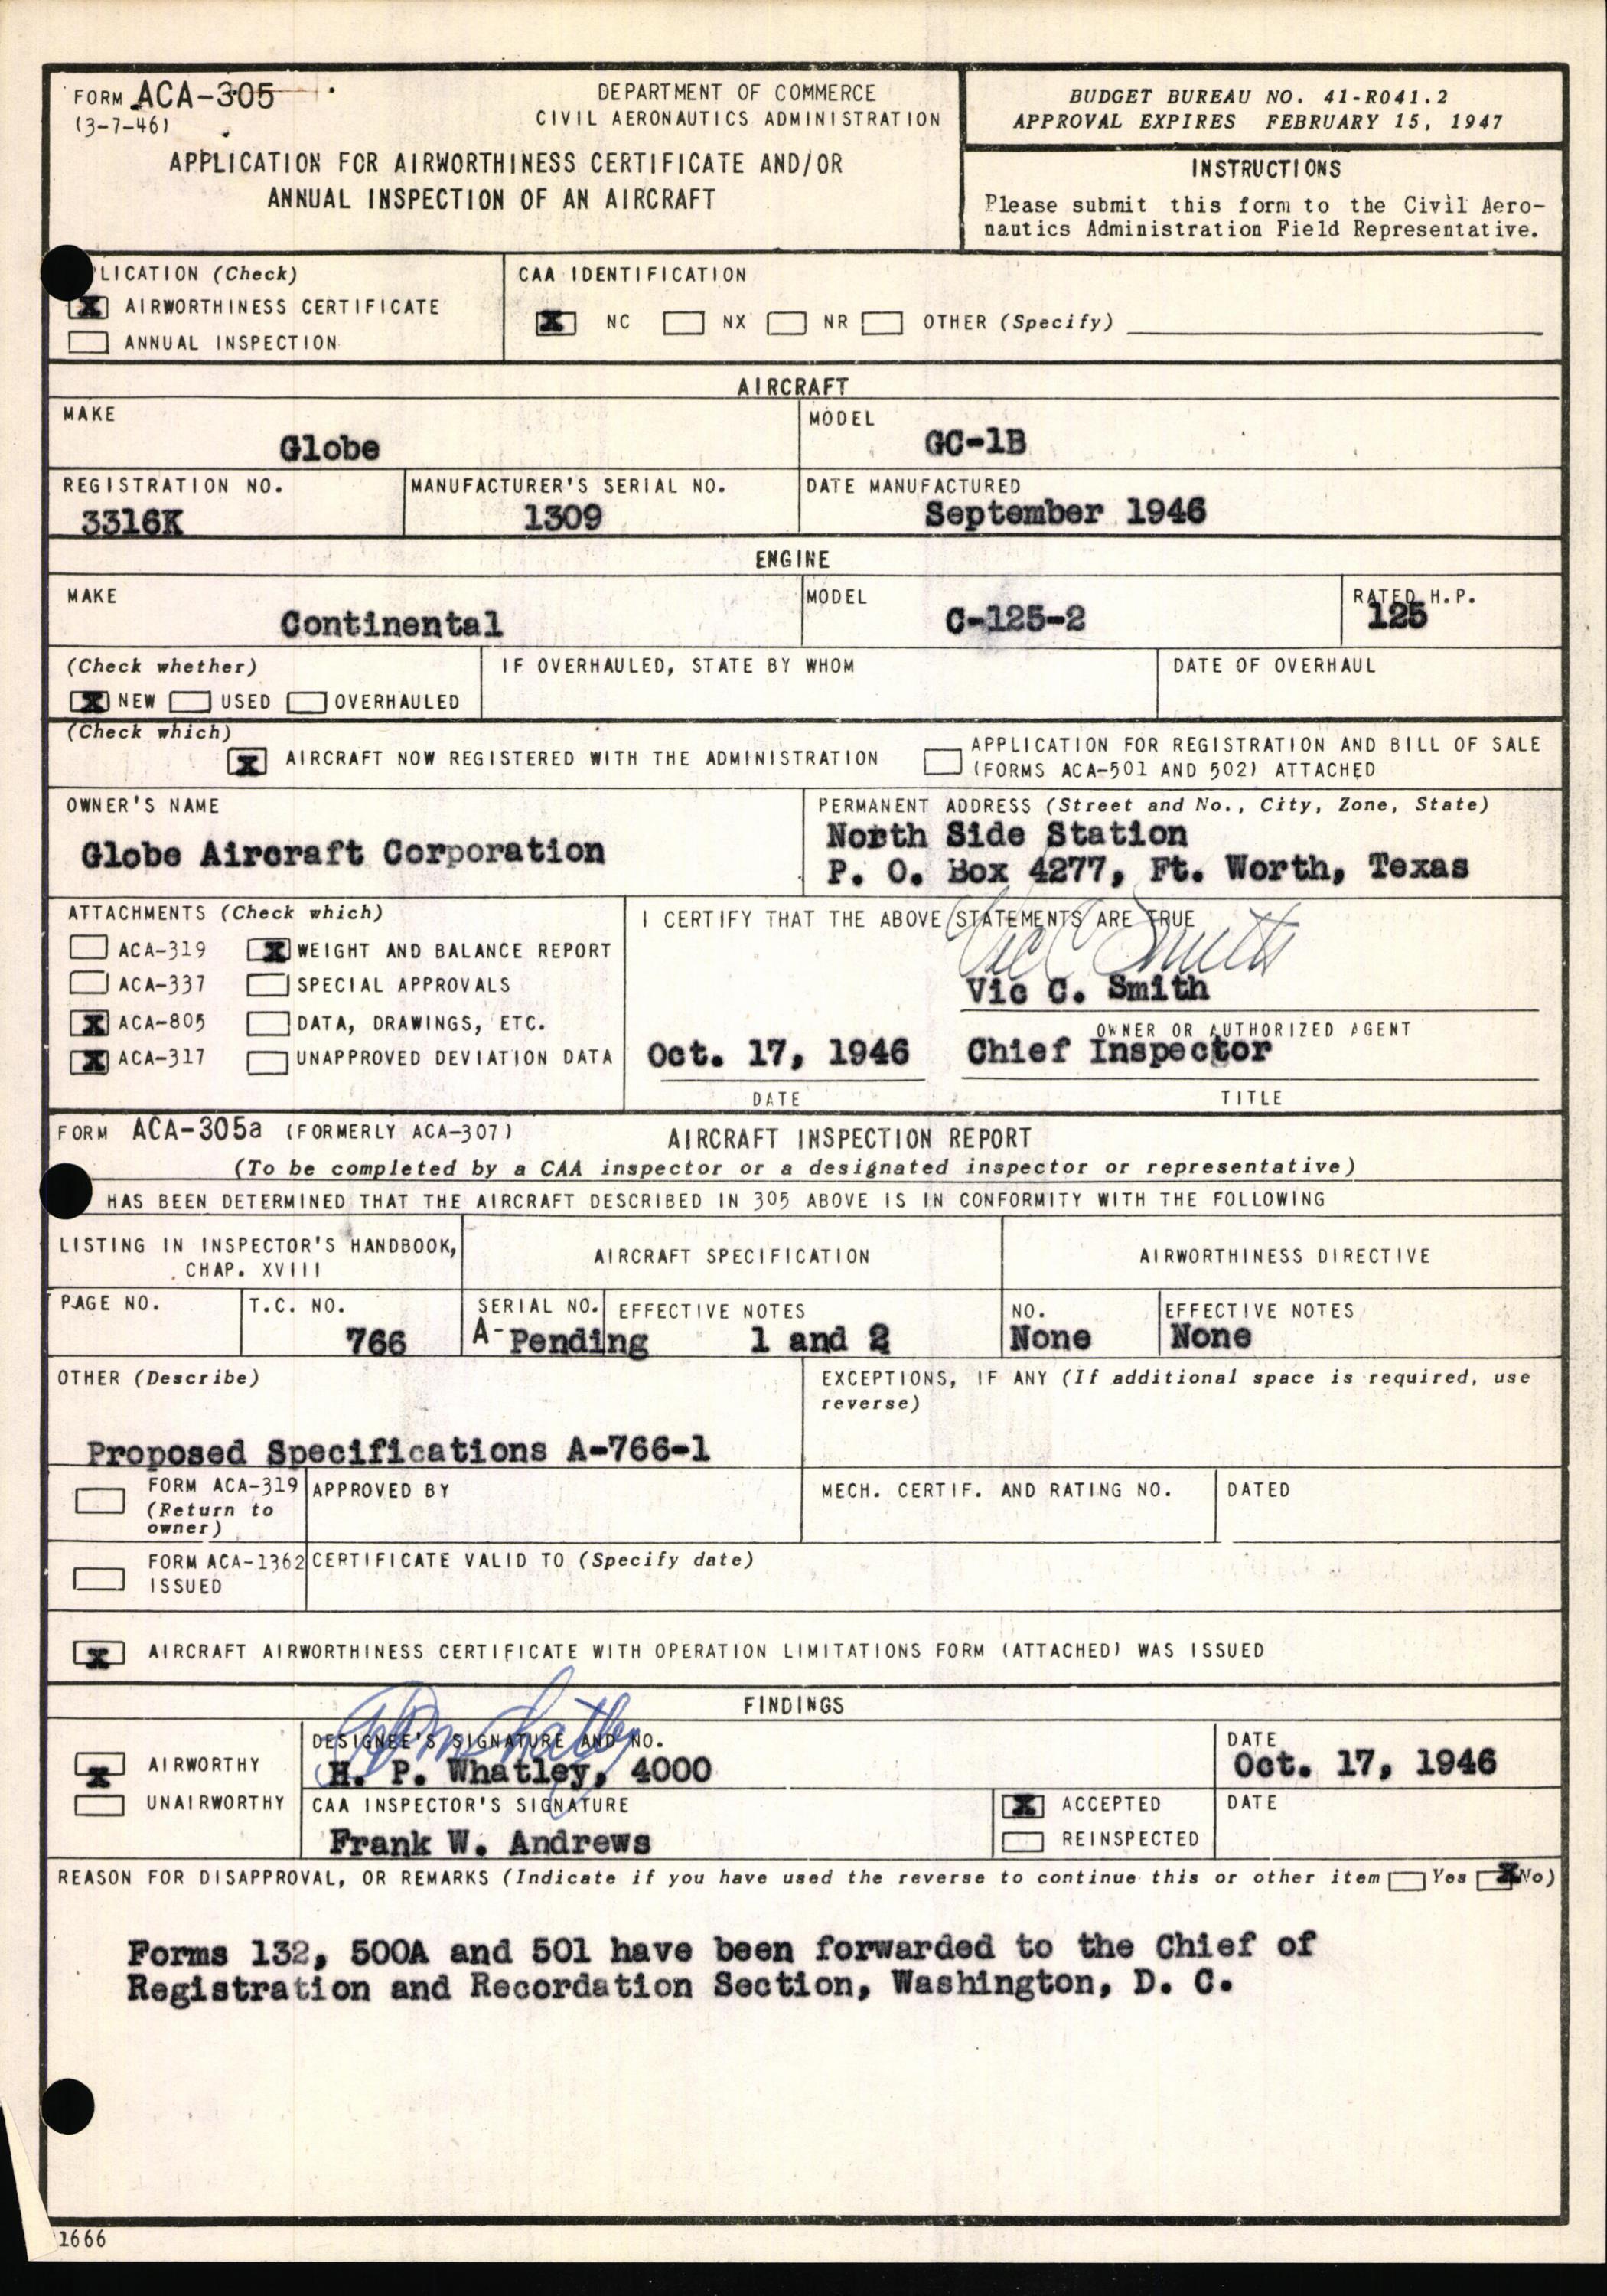 FORM ACA-305
(3-7-46)
DEPARTMENT OF COMMERCE
CIVIL AERONAUTICS ADMINISTRATION
APPLICATION FOR AIRWORTHINESS CERTIFICATE AND/OR
ANNUAL INSPECTION OF AN AIRCRAFT
BUDGET BUREAU NO. 41-R041.2
APPROVAL EXPIRES FEBRUARY 15, 1947
INSTRUCTIONS
Please submit this form to the Civil Aero-
nautics Administration Field Representative.
PLICATION (Check)
X AIRWORTHINESS CERTIFICATE
ANNUAL INSPECTION
CAA IDENTIFICATION
X NC NX NR OTHER (Specify)
AIRCRAFT
MAKE
Globe
MODEL
GC-1B
REGISTRATION NO.
3316K
MANUFACTURER'S SERIAL NO.
1309
DATE MANUFACTURED
September 1946
ENGINE
MAKE
Continental
MODEL
C-125-2
RATED H.P.
125
(Check whether)
X NEW USED OVERHAULED
IF OVERHAULED, STATE BY WHOM
DATE OF OVERHAUL
(Check which)
X AIRCRAFT NOW REGISTERED WITH THE ADMINISTRATION
APPLICATION FOR REGISTRATION AND BILL OF SALE
(FORMS ACA-501 AND 502) ATTACHED
OWNER'S NAME
Globe Aircraft Corporation
PERMANENT ADDRESS (Street and No., City, Zone, State)
North Side Station
P. O. Box 4277, Ft. Worth, Texas
ATTACHMENTS (Check which)
ACA-319 X WEIGHT AND BALANCE REPORT
ACA-337 SPECIAL APPROVALS
X ACA-805 DATA, DRAWINGS, ETC.
X ACA-317 UNAPPROVED DEVIATION DATA
I CERTIFY THAT THE ABOVE STATEMENTS ARE TRUE
Vic C Smith
Vic C. Smith
OWNER OR AUTHORIZED AGENT
Oct. 17, 1946 Chief Inspector
DATE TITLE
FORM ACA-305a (FORMERLY ACA-307)
AIRCRAFT INSPECTION REPORT
(To be completed by a CAA inspector or a designated inspector or representative)
HAS BEEN DETERMINED THAT THE AIRCRAFT DESCRIBED IN 305 ABOVE IS IN CONFORMITY WITH THE FOLLOWING
LISTING IN INSPECTOR'S HANDBOOK,
CHAP. XVIII
AIRCRAFT SPECIFICATION
AIRWORTHINESS DIRECTIVE
PAGE NO.
T.C. NO.
766
SERIAL NO.
A- Pending
EFFECTIVE NOTES
1 and 2
NO.
None
EFFECTIVE NOTES
None
OTHER (Describe)
Proposed Specifications A-766-1
EXCEPTIONS, IF ANY (If additional space is required, use
reverse)
FORM ACA-319
(Return to
owner)
APPROVED BY
MECH. CERTIF. AND RATING NO.
DATED
FORM ACA-1362
ISSUED
CERTIFICATE VALID TO (Specify date)
X AIRCRAFT AIRWORTHINESS CERTIFICATE WITH OPERATION LIMITATIONS FORM (ATTACHED) WAS ISSUED
FINDINGS
X AIRWORTHY
UNAIRWORTHY
DESIGNEE'S SIGNATURE AND NO.
H. P. Whatley, 4000
DATE
Oct. 17, 1946
CAA INSPECTOR'S SIGNATURE
Frank W. Andrews
X ACCEPTED
REINSPECTED
DATE
REASON FOR DISAPPROVAL, OR REMARKS (Indicate if you have used the reverse to continue this or other item Yes X No)
Forms 132, 500A and 501 have been forwarded to the Chief of
Registration and Recordation Section, Washington, D. C.
1666